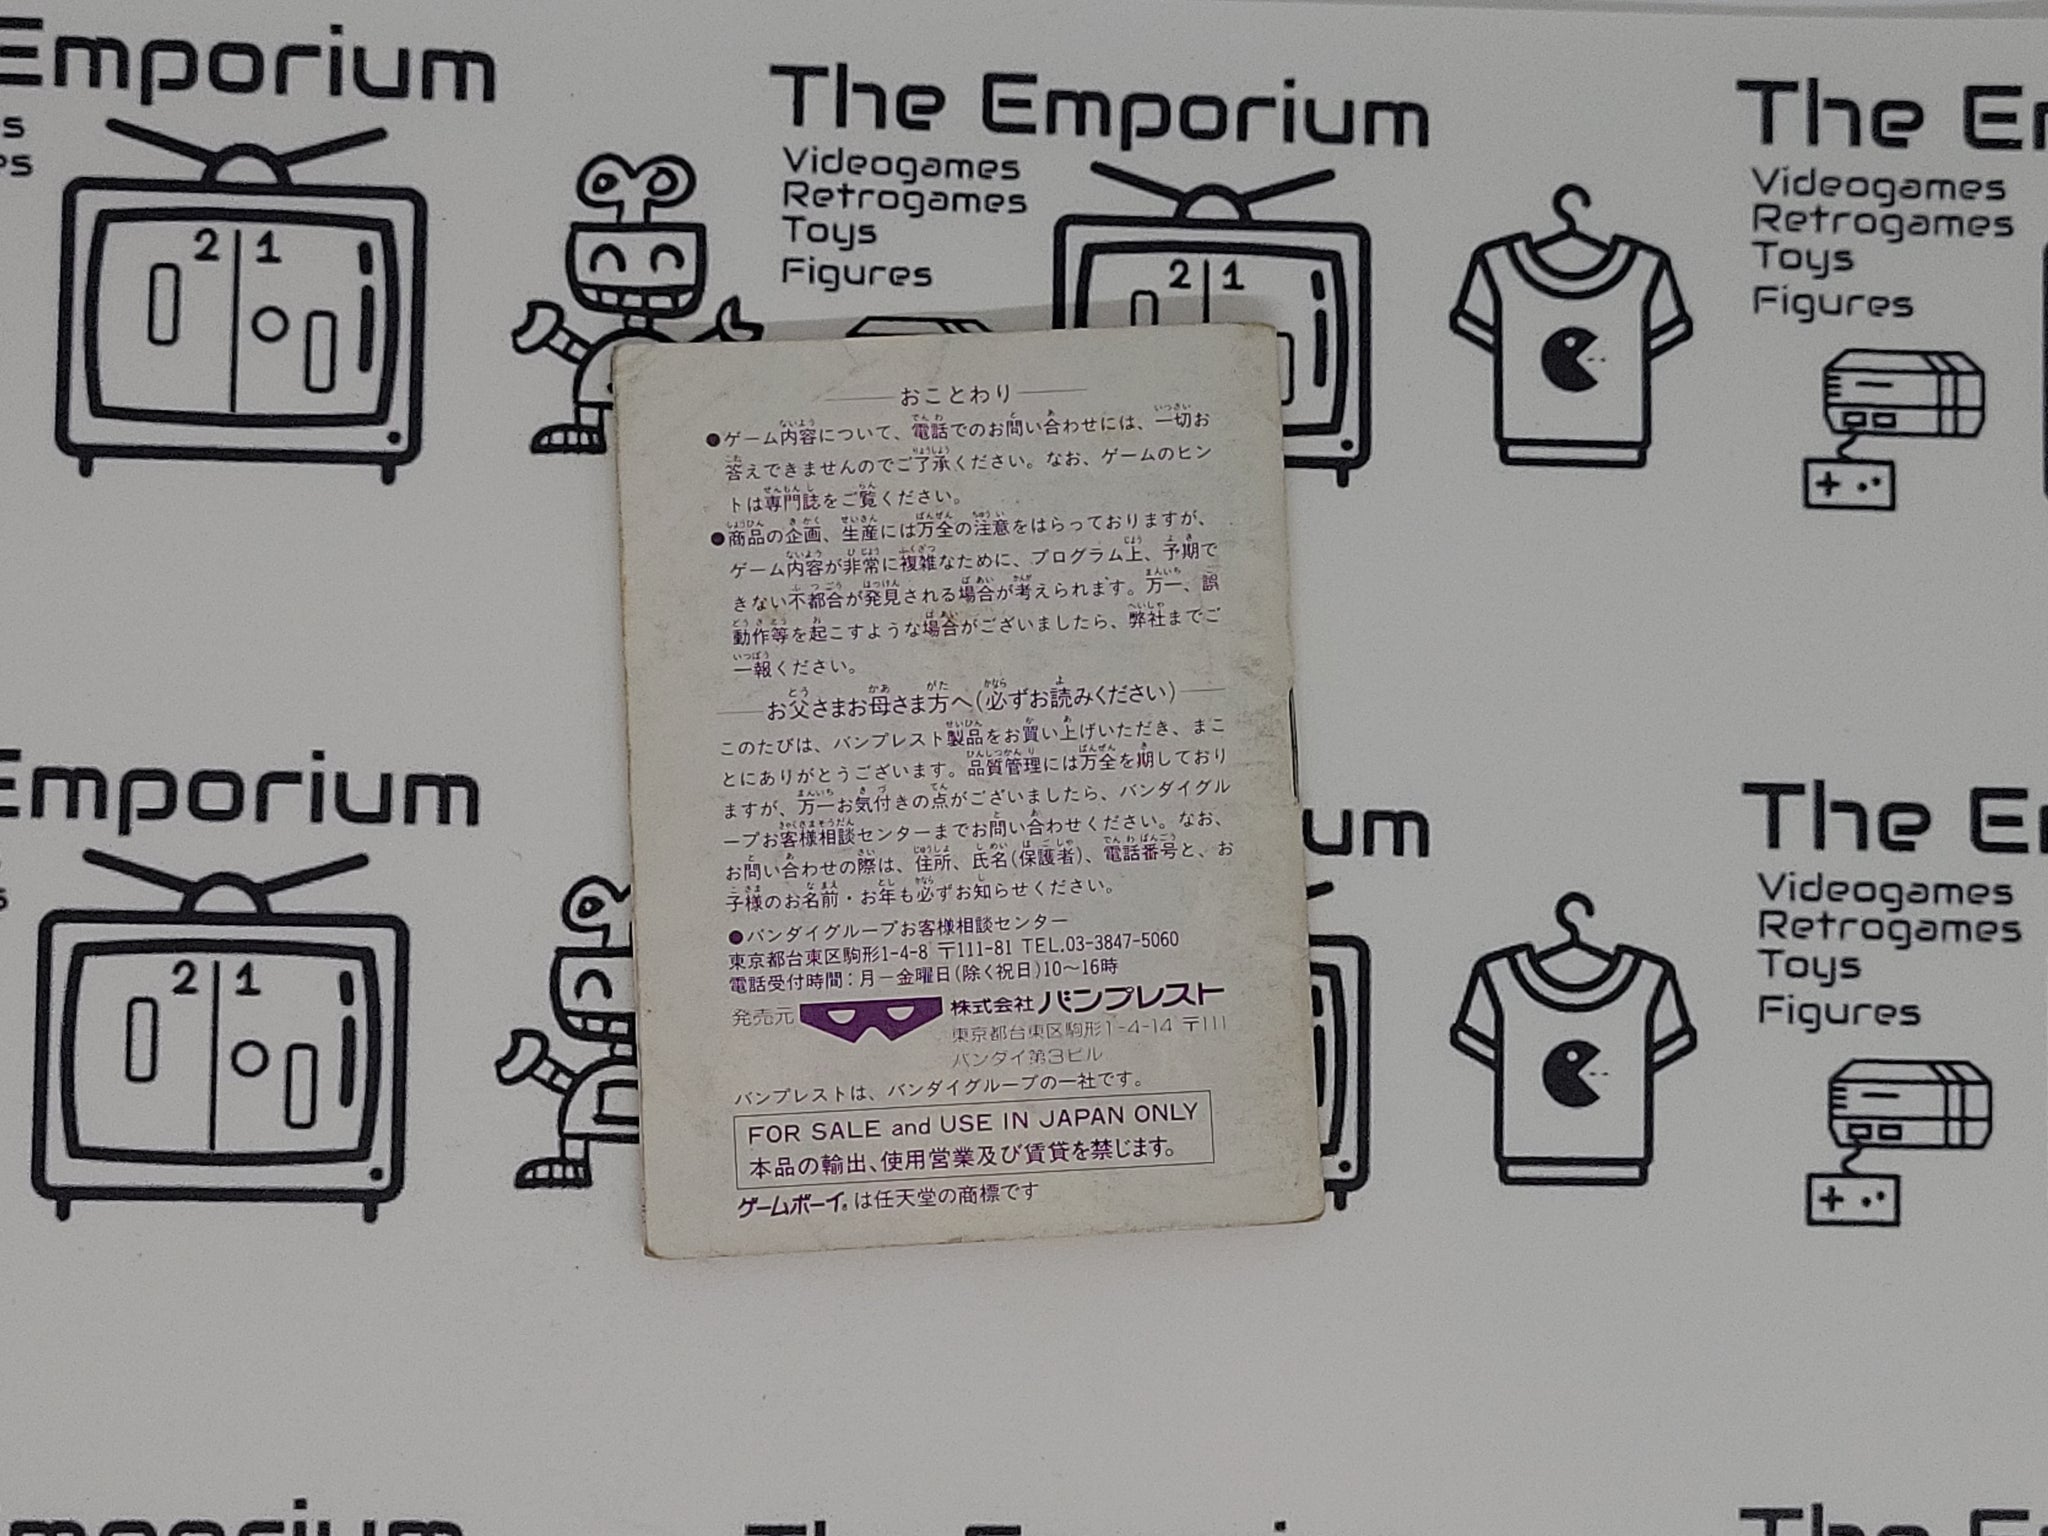 Emporium
The Emporium
Videogames
Retrogames
Toys
Figures
2 1
2 1
The
Videogames
Retrogames
Toys
Figures
おことわり
●ゲーム内容について、電話でのお問い合わせには、一切お
答えできませんのでご了承ください。なお、ゲームのヒン
トは専門誌をご覧ください。
●商品の企画、生産には万全の注意をはらっておりますが、
ゲーム内容が非常に複雑なために、プログラム上、予期で
きない不都合が発見される場合が考えられます。万一、誤
動作等を起こすような場合がございましたら、弊社までご
一報ください。
お父さまお母さま方へ(必ずお読みください)
このたびは、バンプレスト製品をお買い上げいただき、まこ
とにありがとうございます。品質管理には万全を期しており
ますが、万一お気付きの点がございましたら、バンダイグル
ープお客様相談センターまでお問い合わせください。なお、
お問い合わせの際は、住所、氏名(保護者)、電話番号と、お
子様のお名前・お年も必ずお知らせください。
●バンダイグループお客様相談センター
東京都台東区駒形1-4-8 〒111-81 TEL.03-3847-5060
電話受付時間：月－金曜日(除く祝日)10～16時
発売元 株式会社バンプレスト
東京都台東区駒形1-4-14 〒111
バンダイ第3ビル
バンプレストは、バンダイグループの一社です。
FOR SALE and USE IN JAPAN ONLY
本品の輸出、使用営業及び賃貸を禁じます。
ゲームボーイ®は任天堂の商標です
Emporium
2 1
The
Videogames
Retrogames
Toys
Figures